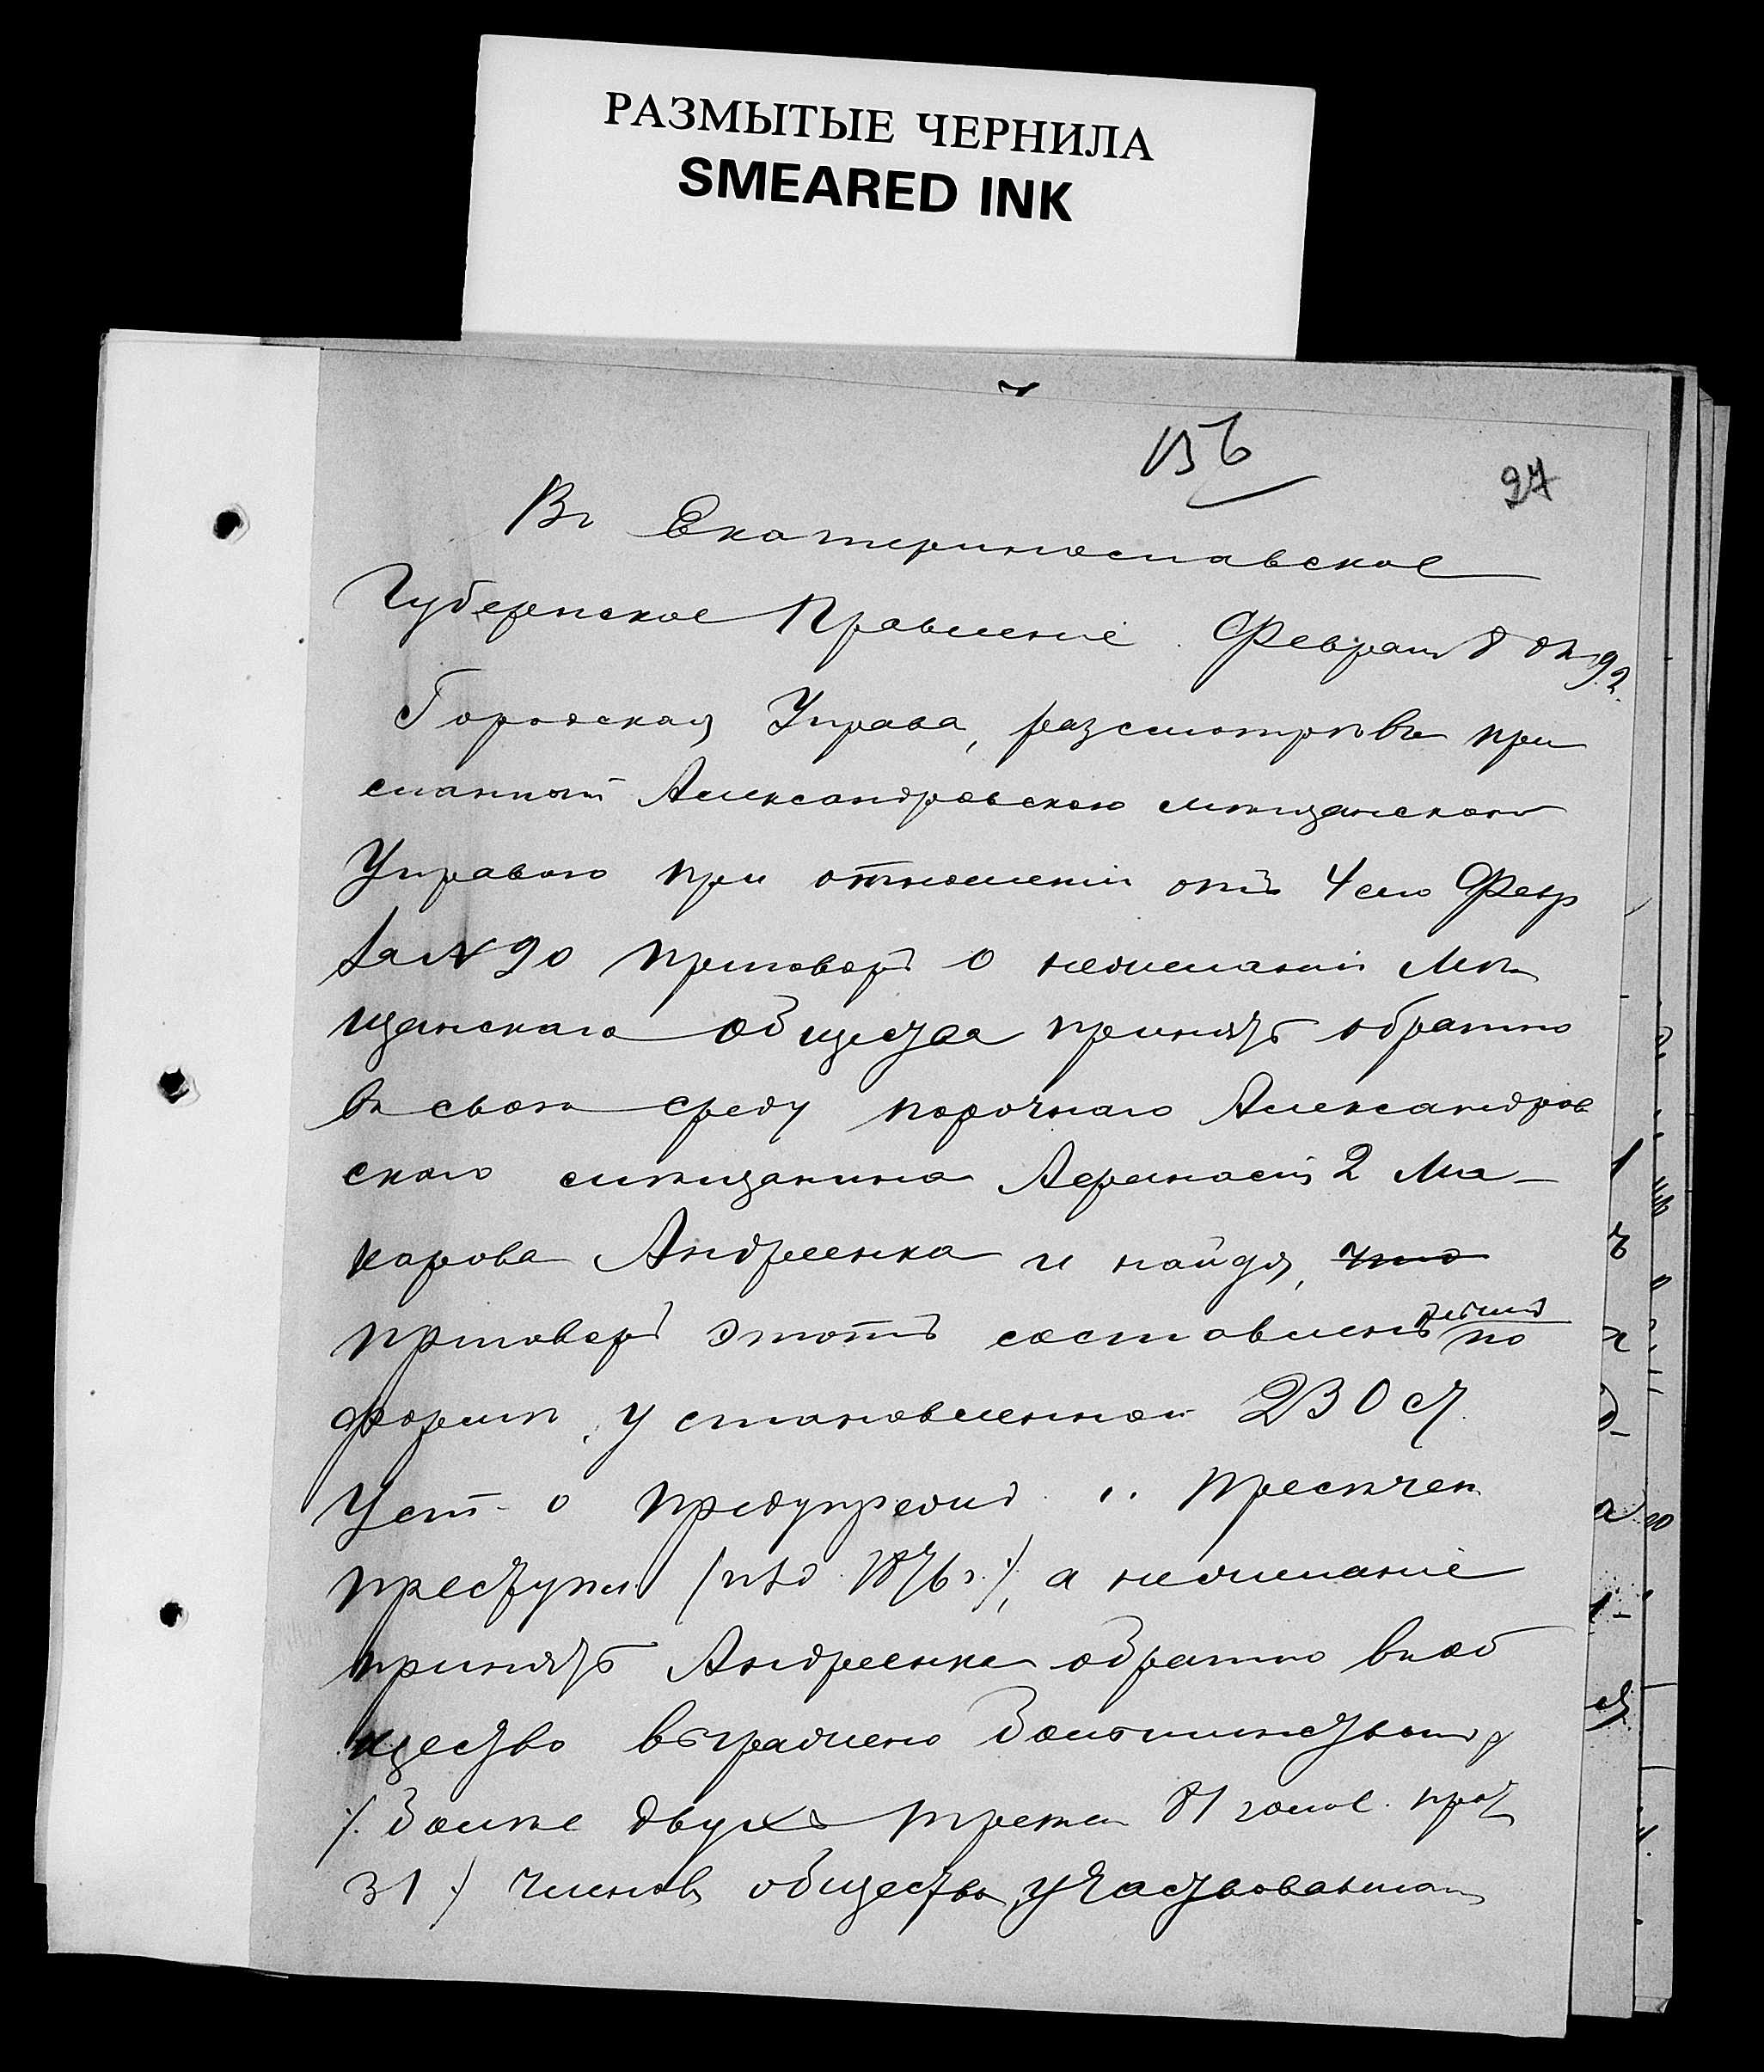 РАЗМЫТЫЕ ЧЕРНИЛА
SMEARED INK
156
27
Въ Екатеринославское
Губернское Правленіе. Февраля 8 дня 92
Городская Управа, разсмотрѣвъ при
сланный Александровскою мѣщанскою
Управою при отношеніи отъ 4 сего Февр
За № 90 приговоръ о нежеланіи Мѣ
щанскаго общества принять обратно
въ свою среду порочнаго Александров
скаго мѣщанина Афанасія 2 Ма-
карова Андреенка и найдя, что
приговоръ этотъ составленъ по
формѣ, установленной 230 ст.
Уст. о предупрежд. и пресѣчен.
преступл. /изд. 1876 г./, а нежеланіе
принять Андреенка обратно въ об
щество выражено большинствомъ
/. болѣе двухъ третей 81 голос. прот
31 ./ членовъ общества, участвовавшихъ